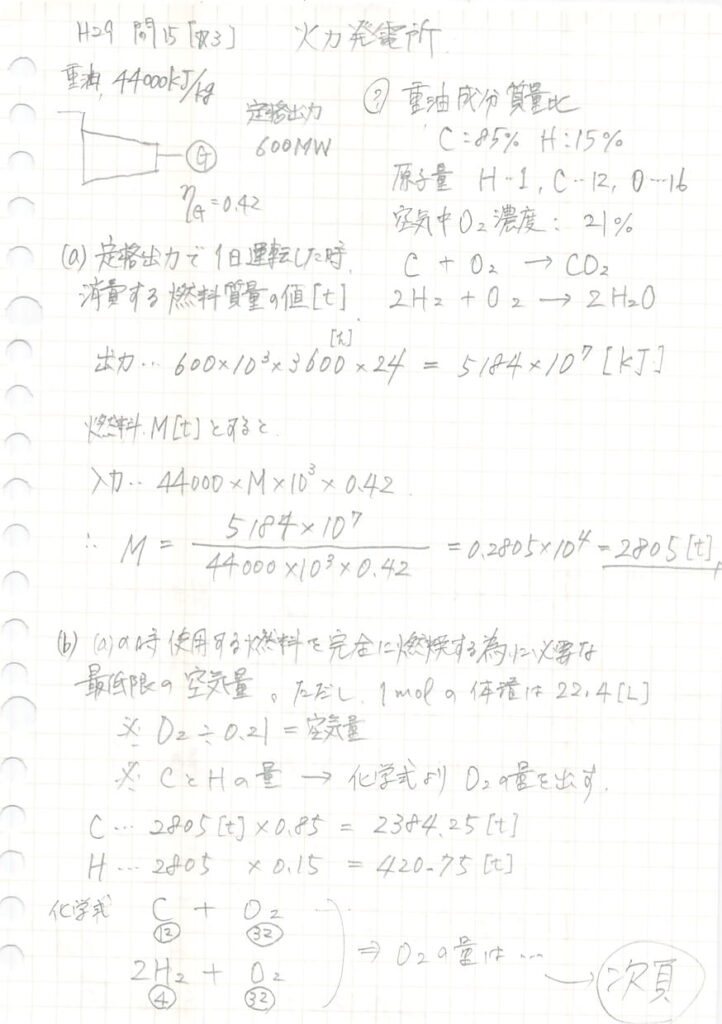 H29 問15 [ 3] 火力発電所
重油 44000kJ/kg
定格出力
600MW
G
ηG=0.42
? 重油成分質量比
C:85% H:15%
原子量 H…1, C…12, O…16
空気中O2濃度: 21%
C + O2 → CO2
2H2 + O2 → 2H2O
(a) 定格出力で1日運転した時、
消費する燃料質量の値[t]
出力… 600×10³×3600×24 = 5184×10⁷ [kJ]
燃料 M[t]とすると
入力… 44000×M×10³×0.42
∴ M = 5184×10⁷ / 44000×10³×0.42 = 0.2805×10⁴ = 2805[t]
(b) (a)の時使用する燃料を完全に燃焼する為に必要な
最低限の空気量。ただし、1molの体積は22.4[L]
※ O2÷0.21=空気量
※ CとHの量 → 化学式よりO2の量を出す。
C… 2805[t]×0.85 = 2384.25[t]
H… 2805 ×0.15 = 420.75[t]
化学式 C + O2
12 32
2H2 + O2
4 32
⇒ O2の量は…
→ 次頁